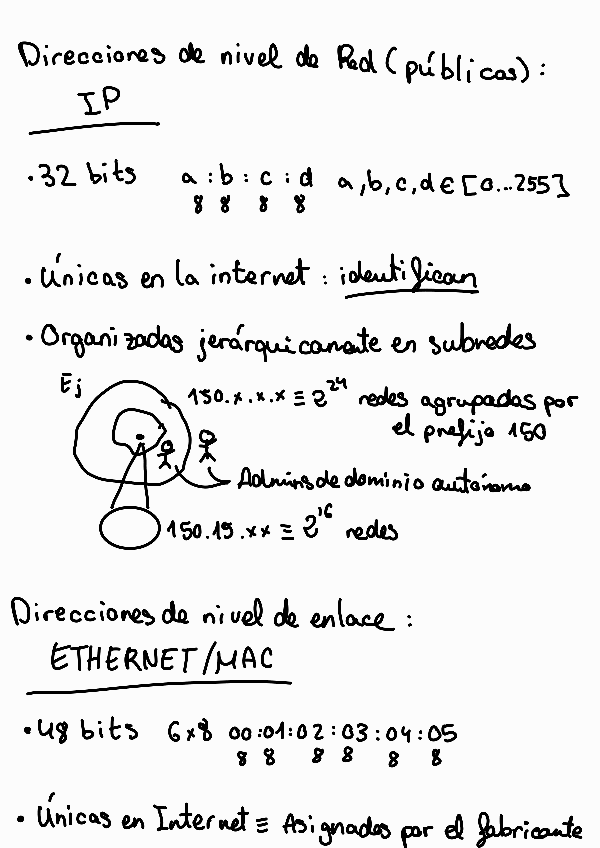 Direcciones de nivel de Red (públicas):
IP
· 32 bits a : b : c : d a,b,c,d ∈ [0...255]
8 8 8 8
· Únicas en la internet : identifican
· Organizadas jerárquicamente en subredes
Ej
150.x.x.x ≡ 2^24 redes agrupadas por
el prefijo 150
Admins de dominio autónomo
150.19.x.x ≡ 2^16 redes
Direcciones de nivel de enlace :
ETHERNET/MAC
· 48 bits 6x8 00:01:02:03:04:05
8 8 8 8 8 8
· Únicas en Internet ≡ Asignados por el fabricante